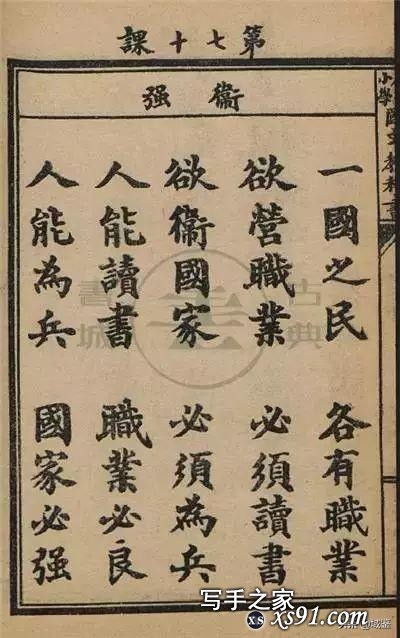 第七十課
衛强
一國之民 各有職業
欲營職業 必須讀書
欲衛國家 必須為兵
人能讀書 職業必良
人能為兵 國家必强
小學國文教科書
古典書城
写手之家
XS xs91.com